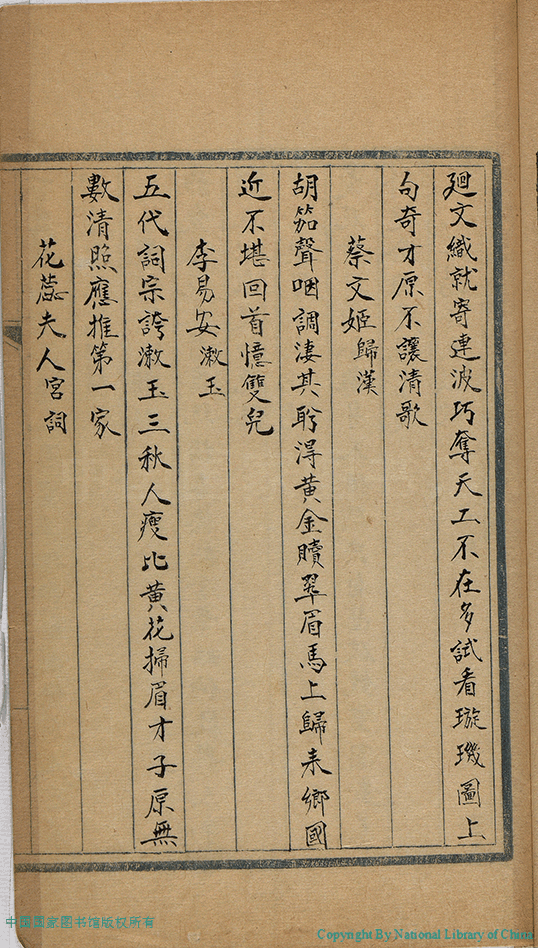 廻文織就寄連波巧奪天工不在多試看璇璣圖上
句奇才原不讓清歌
蔡文姬歸漢
胡笳聲咽調淒其盻得黃金贖翠眉馬上歸来鄉國
近不堪回首憶雙兒
李易安漱玉
五代詞宗誇漱玉三秋人瘦比黃花掃眉才子原無
數清照應推第一家
花蕊夫人宮詞
中国国家图书馆版权所有
Copyright By National Library of China